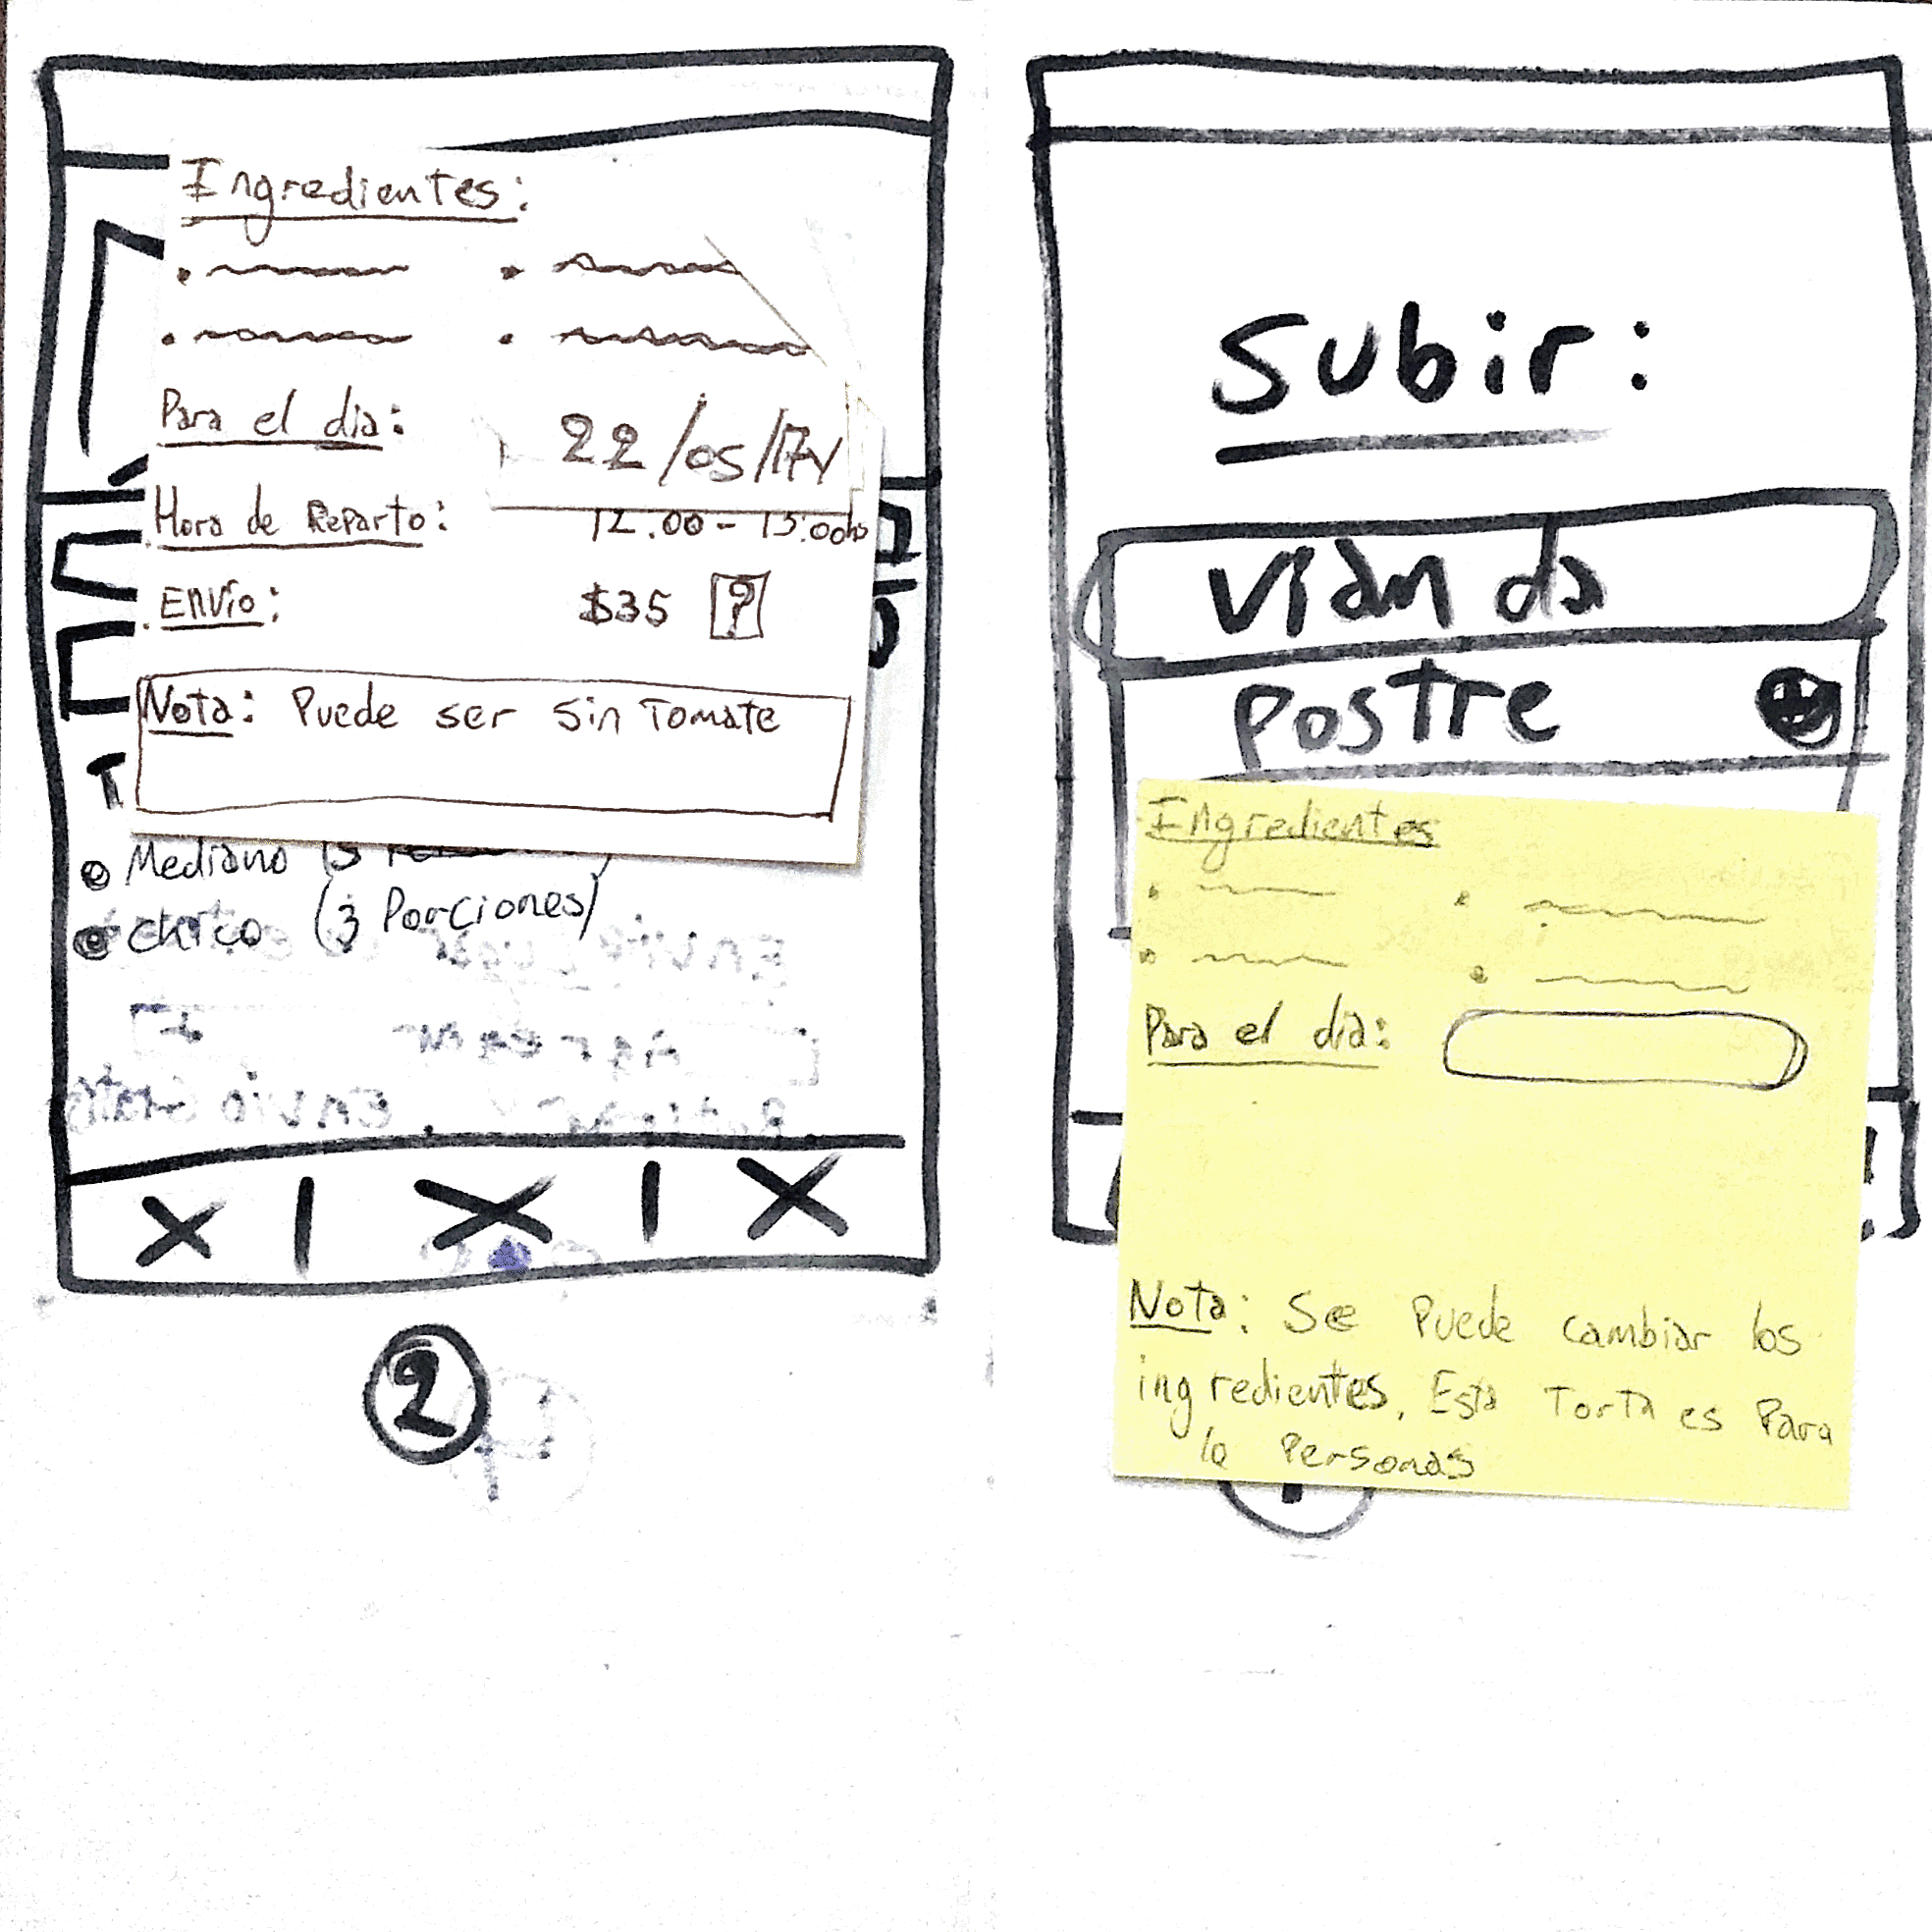 Ingredientes:
Para el dia: 22/05/17
Hora de Reparto: 12.00 - 15:00hs
Envío: $35 ?
Nota: Puede ser sin Tomate
T
Mediano (5
chico (3 Porciones)
2
Subir:
vianda
Postre
Ingredientes
Para el dia:
Nota: Se Puede cambiar los
ingredientes, Esta Torta es Para
Personas